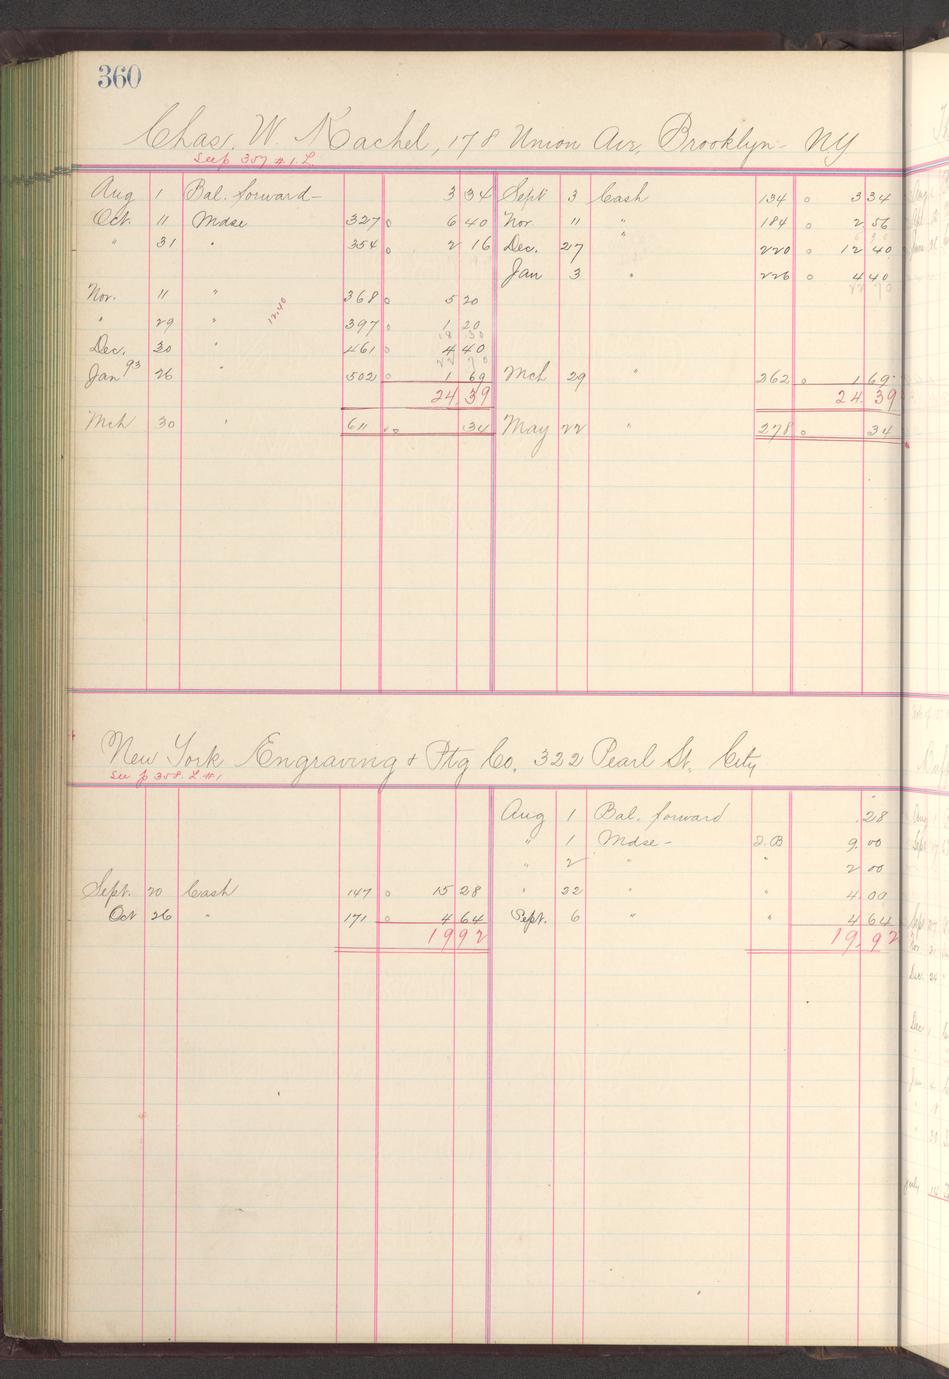 360
Chas. W. Kachel, 178 Union Ave, Brooklyn - NY
See p 357 # 1. L.
Aug 1 Bal. forward - 3 34 Sept 3 Cash 134 3 34
Oct. 11 Mdse 327 6 40 Nov. 11 " 184 2 56
" 31 " 354 2 16 Dec. 27 " 220 12 40
Jan 3 " 226 4 40
22 70
Nov. 11 " 368 5 20
" 29 " 12.40 397 1 20
18 30
Dec. 30 " 461 4 40
22 70
Jan 93 26 " 502 1 69 Mch 29 " 262 1 69
24 39 24 39
Mch 30 " 611 34 May 22 " 278 34
New York Engraving & Ptg Co. 322 Pearl St. City
See p 358. L # 1
Aug 1 Bal. forward .28
" 1 Mdse - J.B 9 00
" 2 " " 2 00
Sept. 20 Cash 147 15 28 " 22 " " 4 00
Oct 26 " 171 4 64 Sept. 6 " " 4 64
19 92 19.92